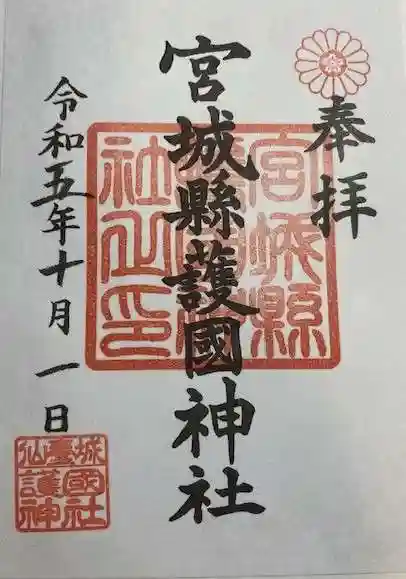 奉拝
宮城縣護國神社
令和五年十月一日
宮城縣
護國神
社之印
城國社
仙臺護神